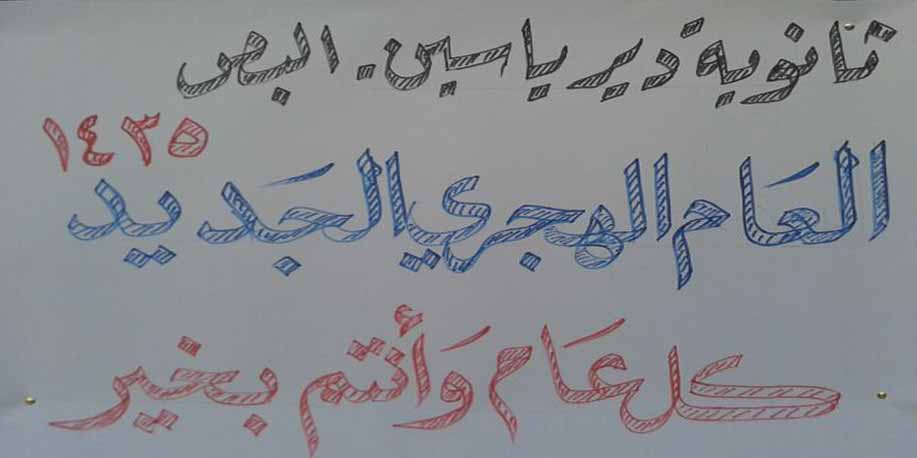 ثانوية دير ياسين. البص
١٤٣٥
العام الهجري الجديد
كل عَام وَأنتم بخير